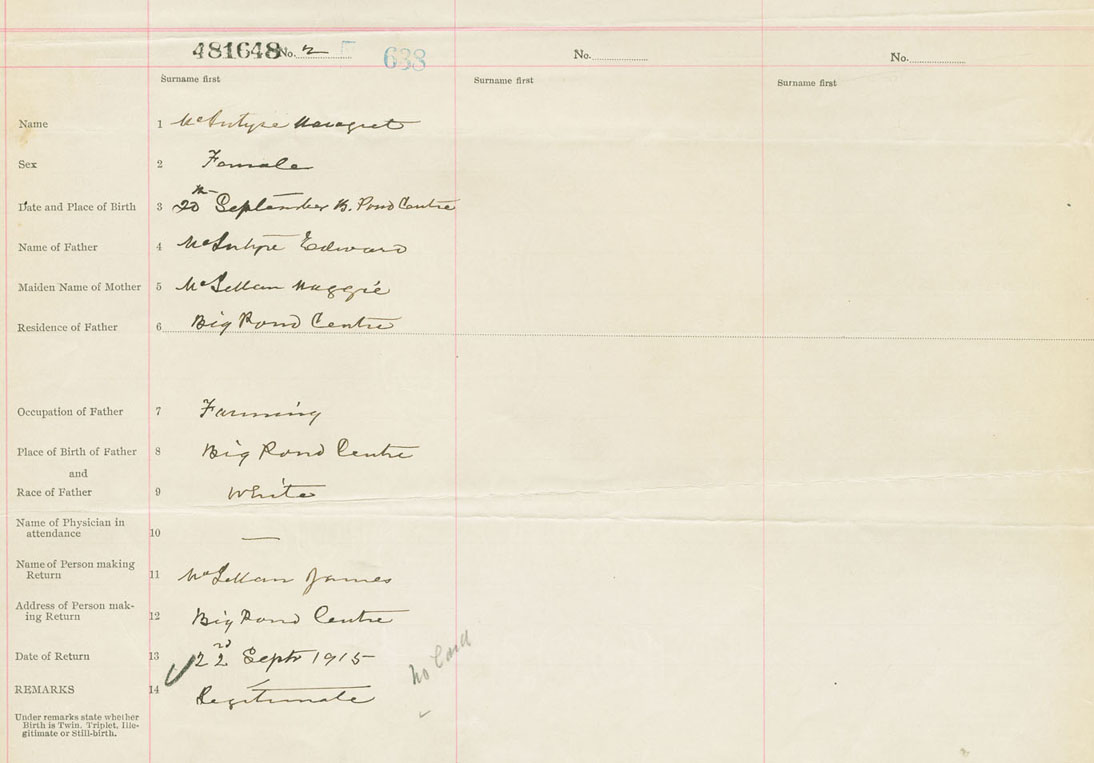 481648 No. 2 638 No. No.
Surname first Surname first Surname first
Name 1 McIntyre Maragret
Sex 2 Female
Date and Place of Birth 3 20th September B. Pond Centre
Name of Father 4 McIntyre Edward
Maiden Name of Mother 5 McLellan Maggie
Residence of Father 6 Big Pond Centre
Occupation of Father 7 Farming
Place of Birth of Father 8 Big Pond Centre
and
Race of Father 9 White
Name of Physician in
attendance 10 —
Name of Person making
Return 11 McLellan James
Address of Person mak-
ing Return 12 Big Pond Centre
Date of Return 13 22nd Septr 1915
no Card
REMARKS 14 Legitimate
Under remarks state whether
Birth is Twin, Triplet, Ille-
gitimate or Still-birth.